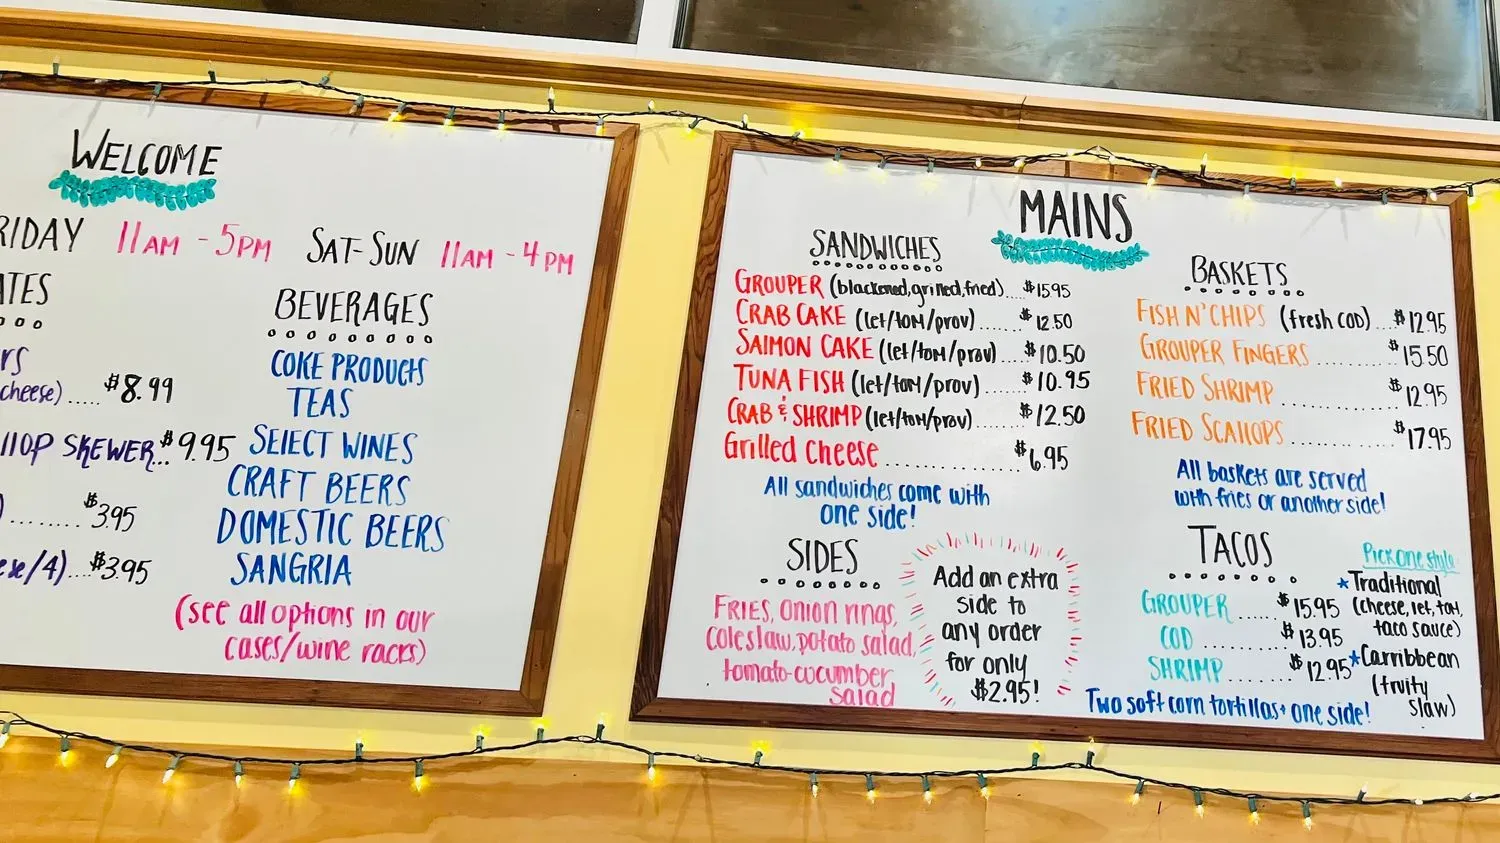 WELCOME
RIDAY 11AM - 5PM SAT-SUN 11AM - 4PM
ATES
cheese)..... $8.99
SKEWER... $9.95
)........ $3.95
ese/4).... $3.95
BEVERAGES
COKE PRODUCTS
TEAS
SELECT WINES
CRAFT BEERS
DOMESTIC BEERS
SANGRIA
(see all options in our
cases/wine racks)
MAINS
SANDWICHES
GROUPER (blackened, grilled, fried).... $15.95
CRAB CAKE (let/tom/prov)....... $12.50
SALMON CAKE (let/tom/prov).... $10.50
TUNA FISH (let/tom/prov)....... $10.95
CRAB & SHRIMP (let/tom/prov)...... $12.50
Grilled Cheese ............... $6.95
All sandwiches come with
one side!
SIDES
FRIES, onion rings,
coleslaw, potato salad,
tomato-cucumber
salad
Add an extra
side to
any order
for only
$2.95!
BASKETS
FISH N' CHIPS (fresh COD)... $12.95
GROUPER FINGERS .......... $15.50
FRIED SHRIMP .............. $12.95
FRIED SCALLOPS ............ $17.95
All baskets are served
with fries or another side!
TACOS
GROUPER ..... $15.95
COD ........... $13.95
SHRIMP ....... $12.95
Two soft corn tortillas + one side!
Pick one style
*Traditional
(cheese, let, tom,
taco sauce)
*Carribbean
(fruity
slaw)